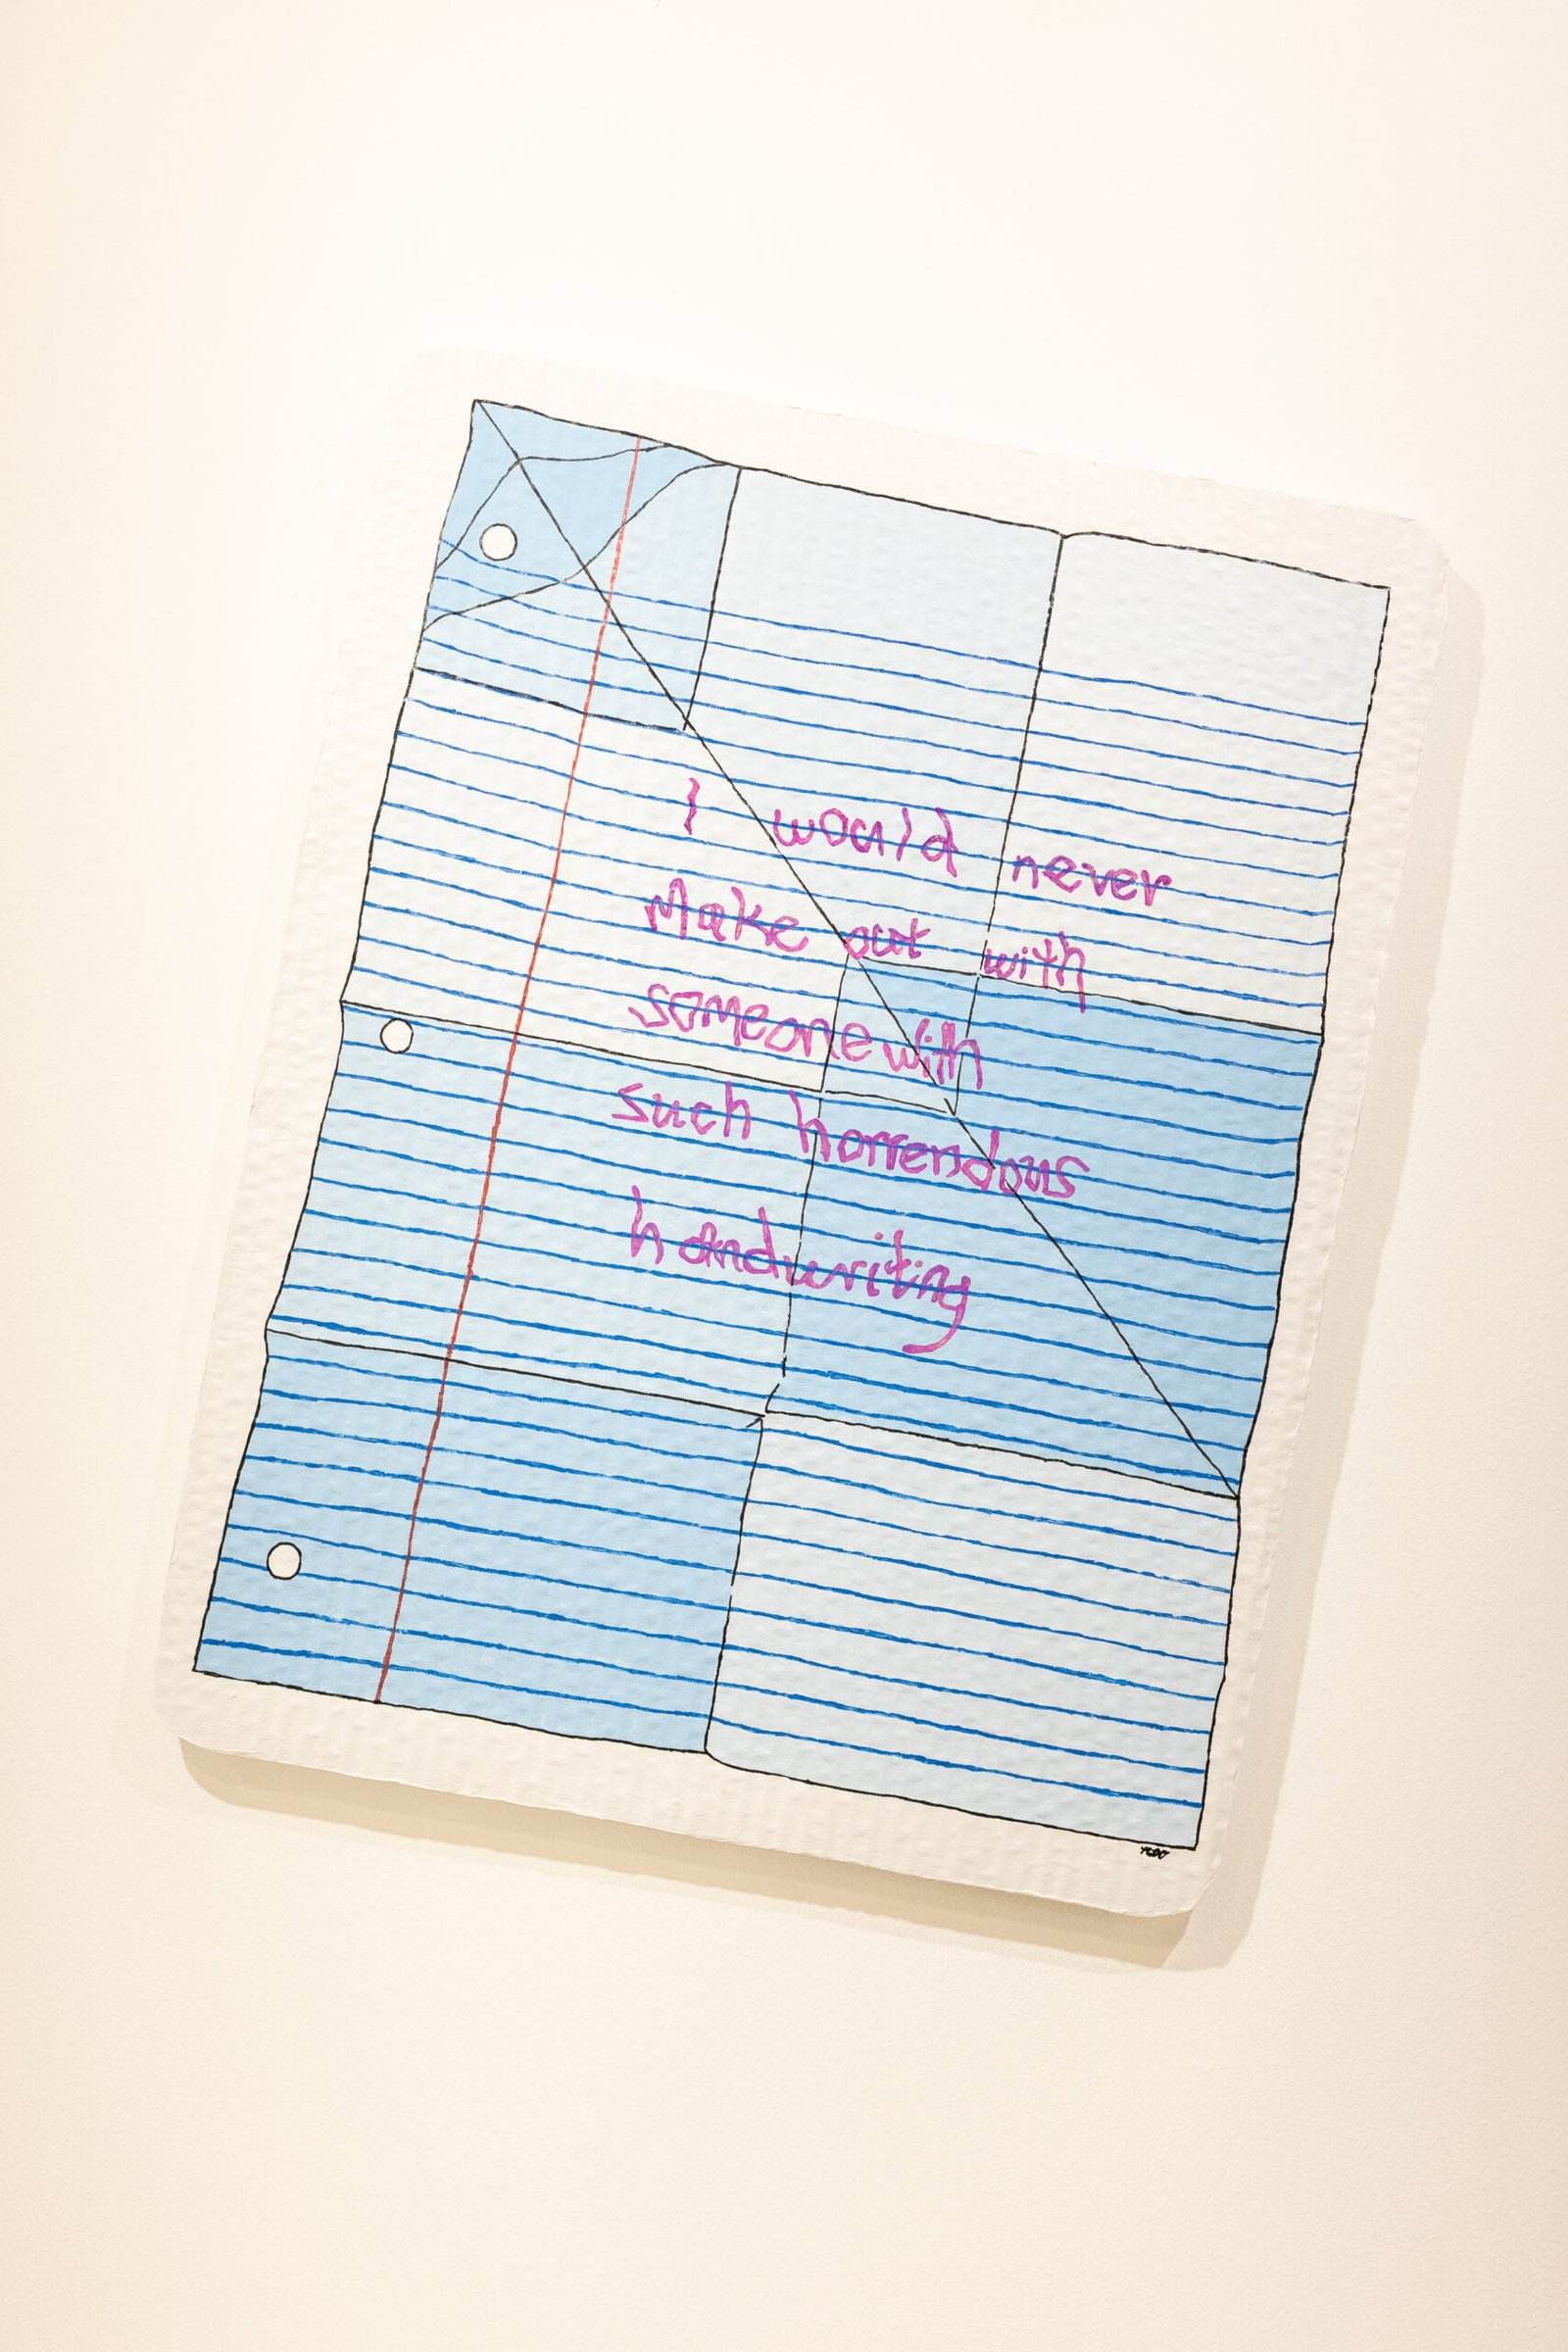 I would never
Make out with
someone with
such horrendous
handwriting